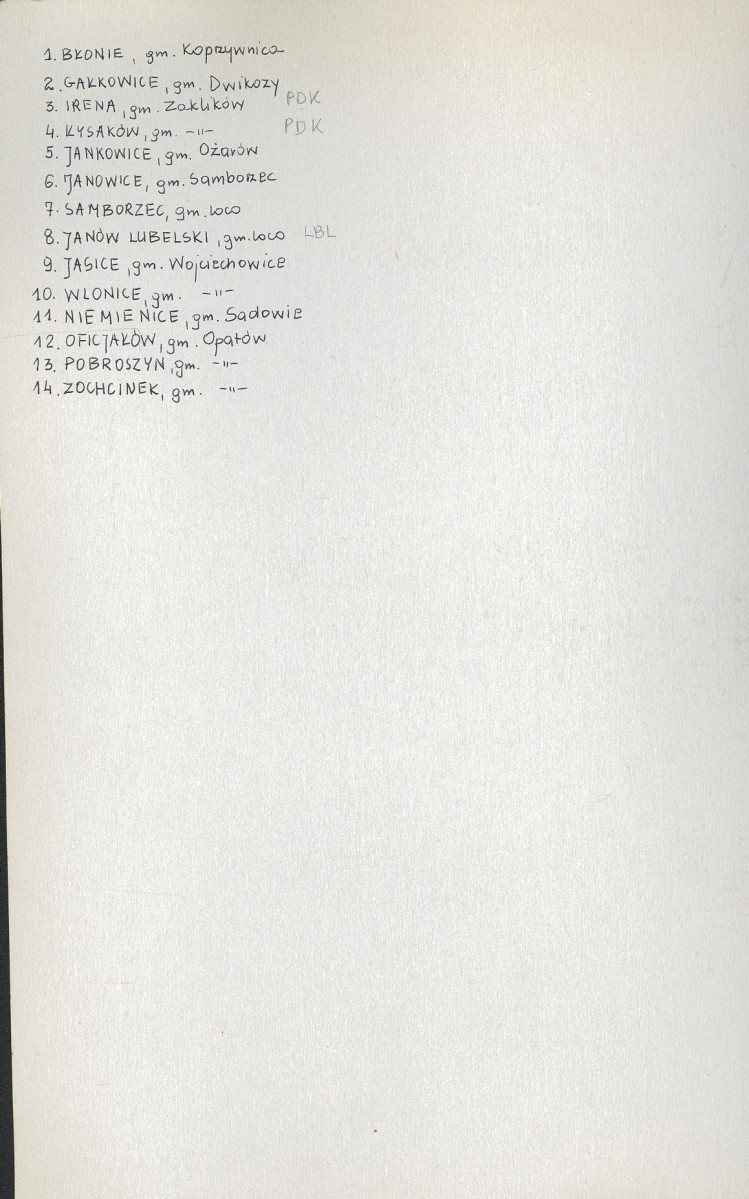 1. BŁONIE, gm. Koprzywnica
2. GAŁKOWICE, gm. Dwikozy
3. IRENA, gm. Zaklików PDK
4. ŁYSAKÓW, gm. -"- PDK
5. JANKOWICE, gm. Ożarów
6. JANOWICE, gm. Samborzec
7. SAMBORZEC, gm. loco
8. JANÓW LUBELSKI, gm. loco LBL
9. JASICE, gm. Wojciechowice
10. WLONICE, gm. -"-
11. NIEMIENICE, gm. Sadowie
12. OFICJAŁÓW, gm. Opatów
13. POBROSZYN, gm. -"-
14. ZOCHCINEK, gm. -"-